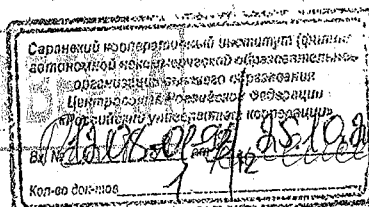 Саранский кооперативный институт (филиал)
автономной некоммерческой образовательной
организации высшего образования
Центросоюза Российской Федерации
«Российский университет кооперации»
Вх. № 25.10.2
Кол-во док-тов 1